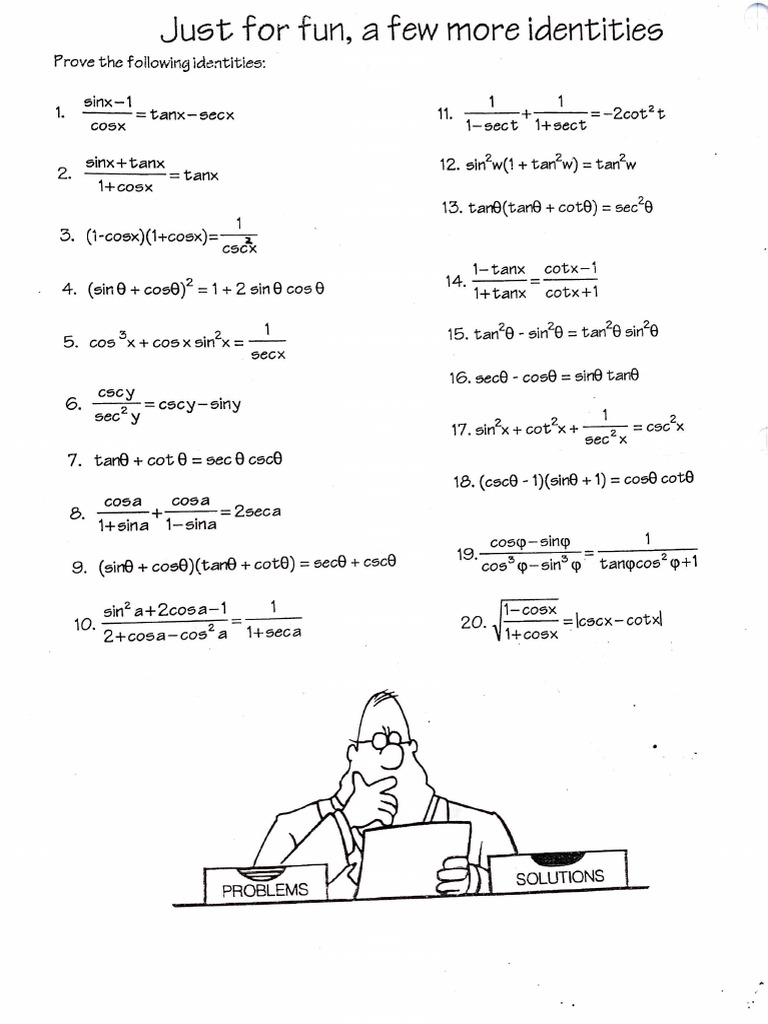 Just for fun, a few more identities
Prove the following identities:
1. (sinx−1)/(cosx) = tanx−secx
2. (sinx+tanx)/(1+cosx) = tanx
3. (1-cosx)(1+cosx)= 1/(csc²x)
4. (sin θ + cosθ)² = 1 + 2 sin θ cos θ
5. cos ³x + cos x sin²x = 1/(secx)
6. (cscy)/(sec² y) = cscy−siny
7. tanθ + cot θ = sec θ cscθ
8. (cosa)/(1+sina) + (cosa)/(1−sina) = 2seca
9. (sinθ + cosθ)(tanθ + cotθ) = secθ + cscθ
10. (sin² a+2cosa−1)/(2+cosa−cos² a) = 1/(1+seca)
11. 1/(1−sect) + 1/(1+sect) = −2cot² t
12. sin²w(1 + tan²w) = tan²w
13. tanθ(tanθ + cotθ) = sec²θ
14. (1−tanx)/(1+tanx) = (cotx−1)/(cotx+1)
15. tan²θ - sin²θ = tan²θ sin²θ
16. secθ - cosθ = sinθ tanθ
17. sin²x + cot²x + 1/(sec² x) = csc²x
18. (cscθ - 1)(sinθ + 1) = cosθ cotθ
19. (cosφ−sinφ)/(cos³ φ−sin³ φ) = 1/(tanφcos² φ+1)
20. √((1−cosx)/(1+cosx)) = |cscx−cotx|
PROBLEMS
SOLUTIONS